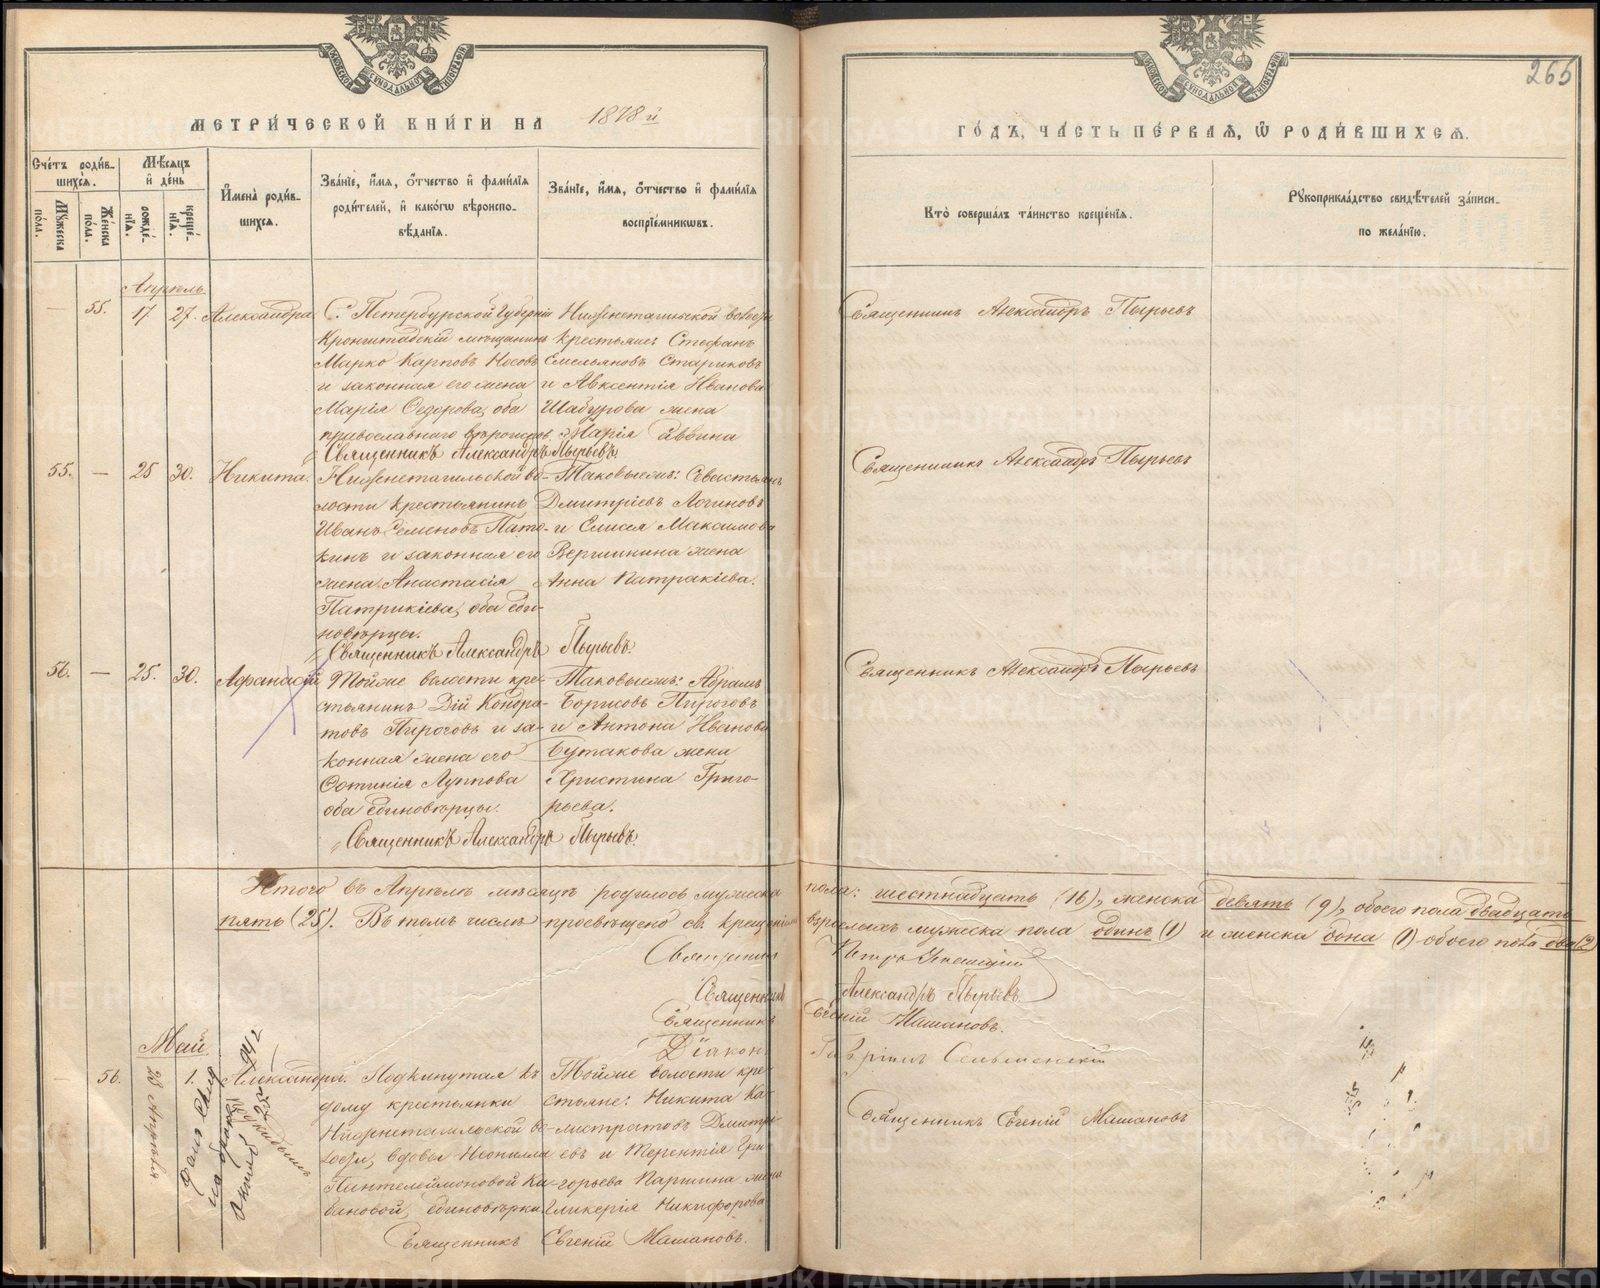 МЕТРИ́ЧЕСКОЙ КНИ́ГИ НА 1878 й
265
ГО́ДЪ, ЧА́СТЬ ПЕ́РВАЯ, Ѿ РОДИ́ВШИХСЯ.
Сче́тъ роди́в-
шихся.
Мѣ́сяцъ
и де́нь
Мужеска
по́ла.
Же́нска
по́ла.
рожде́-
нїя.
креще́-
нїя.
Имена̀ роди́в-
шихся.
Зва́нїе, и́мя, о́тчество и фами́лїя
роди́телей, и како́гѡ вѣроиспо-
вѣ́данїя.
Зва́нїе, и́мя, о́тчество и фами́лїя
воспрїе́мникѡвъ.
Кто̀ соверша́лъ та́инство креще́нїя.
Рукоприкла́дство свидѣ́телей за́писи
по жела́нїю.
Апрѣль
— 55. 17 27. Александра.
С. Петербургской Губерніи
Кронштадскій мѣщанинъ
Марко Карповъ Носовъ
и законная его жена
Марія Ѳедорова, оба
православнаго
Священникъ Александръ Пырьевъ
Нижнетагильской волости
крестьяне: Стефанъ
Емельяновъ Стариковъ
и Авксентія Иванова
Шабурова жена
Марія
Священникъ Александръ Пырьевъ
55. — 25 30. Никита.
Нижнетагильской во-
лости крестьянинъ
Иванъ Семеновъ Пато-
кинъ и законная его
жена Анастасія
Патрикіева, оба еди-
новѣрцы.
Священникъ Александръ Пырьевъ.
Таковыежъ:
Дмитріевъ Логиновъ
и Елисея Максимова
Вершинина жена
Анна Патракіева.
Священникъ Александръ Пырьевъ
56. — 25. 30. Афанасій
Тойже волости кре-
стьянинъ Дій Кондра-
товъ Пироговъ и за-
конная жена его
Фотинія Луппова
оба единовѣрцы.
Священникъ Александръ Пырьевъ.
Таковыежъ: Абрамъ
Борисовъ Пироговъ
и Антона Иванова
Бутакова жена
Христина Григо-
рьева.
Священникъ Александръ Пырьевъ
Итого въ Апрѣлѣ мѣсяцѣ родилось мужеска пола: шестнадцать (16), женска девять (9), обоего пола двадцать
пять (25). Въ томъ числѣ просвѣщено св. крещеніемъ взрослыхъ мужеска пола одинъ (1) и женска одна (1) обоего пола два (2)
Священникъ Петръ
Священникъ Александръ Пырьевъ.
Священникъ Евгеній Машановъ.
Діакон
Май
— 56. 28 Апрѣля 1. Александра.
Подкинутая къ
дому крестьянки
Нижнетагильской во-
лости, вдовы Неонилы
Пантелеймоновой Ка-
бановой, единовѣрки.
Тойже волости кре-
стьяне: Никита Ка-
листратовъ Дмитрі-
евъ и Терентія Гри-
горьева Паршина жена
Гликерія Никифорова
Священникъ Евгеній Машановъ.
Священникъ Евгеній Машановъ
METRIKI.GASO-URAL.RU